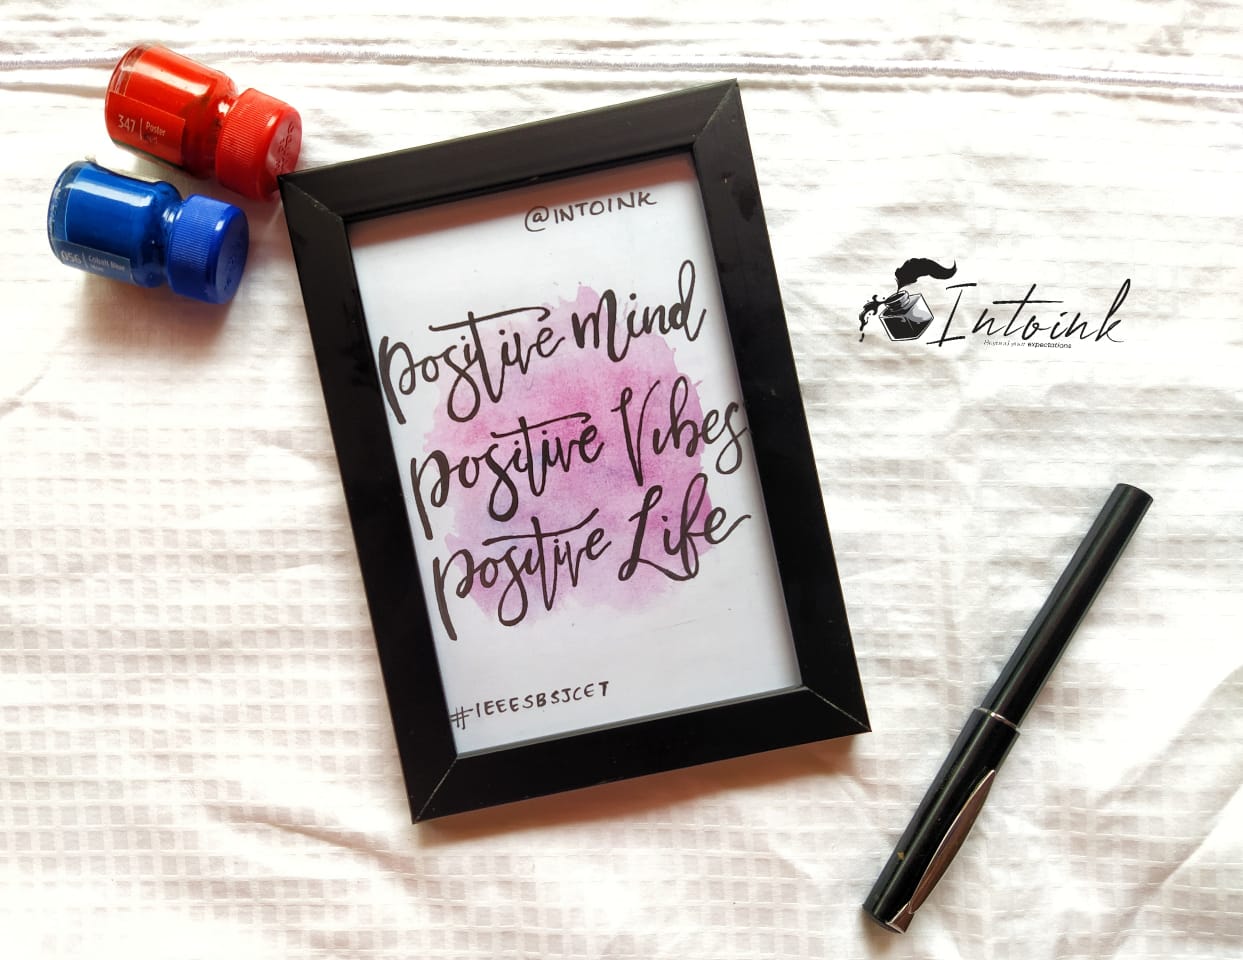 347 Poster
Red
056 Cobalt Blue
@INTOINK
Positive Mind
Positive Vibes
Positive Life
#IEEESBSJCET
Intoink
Beyond your expectations